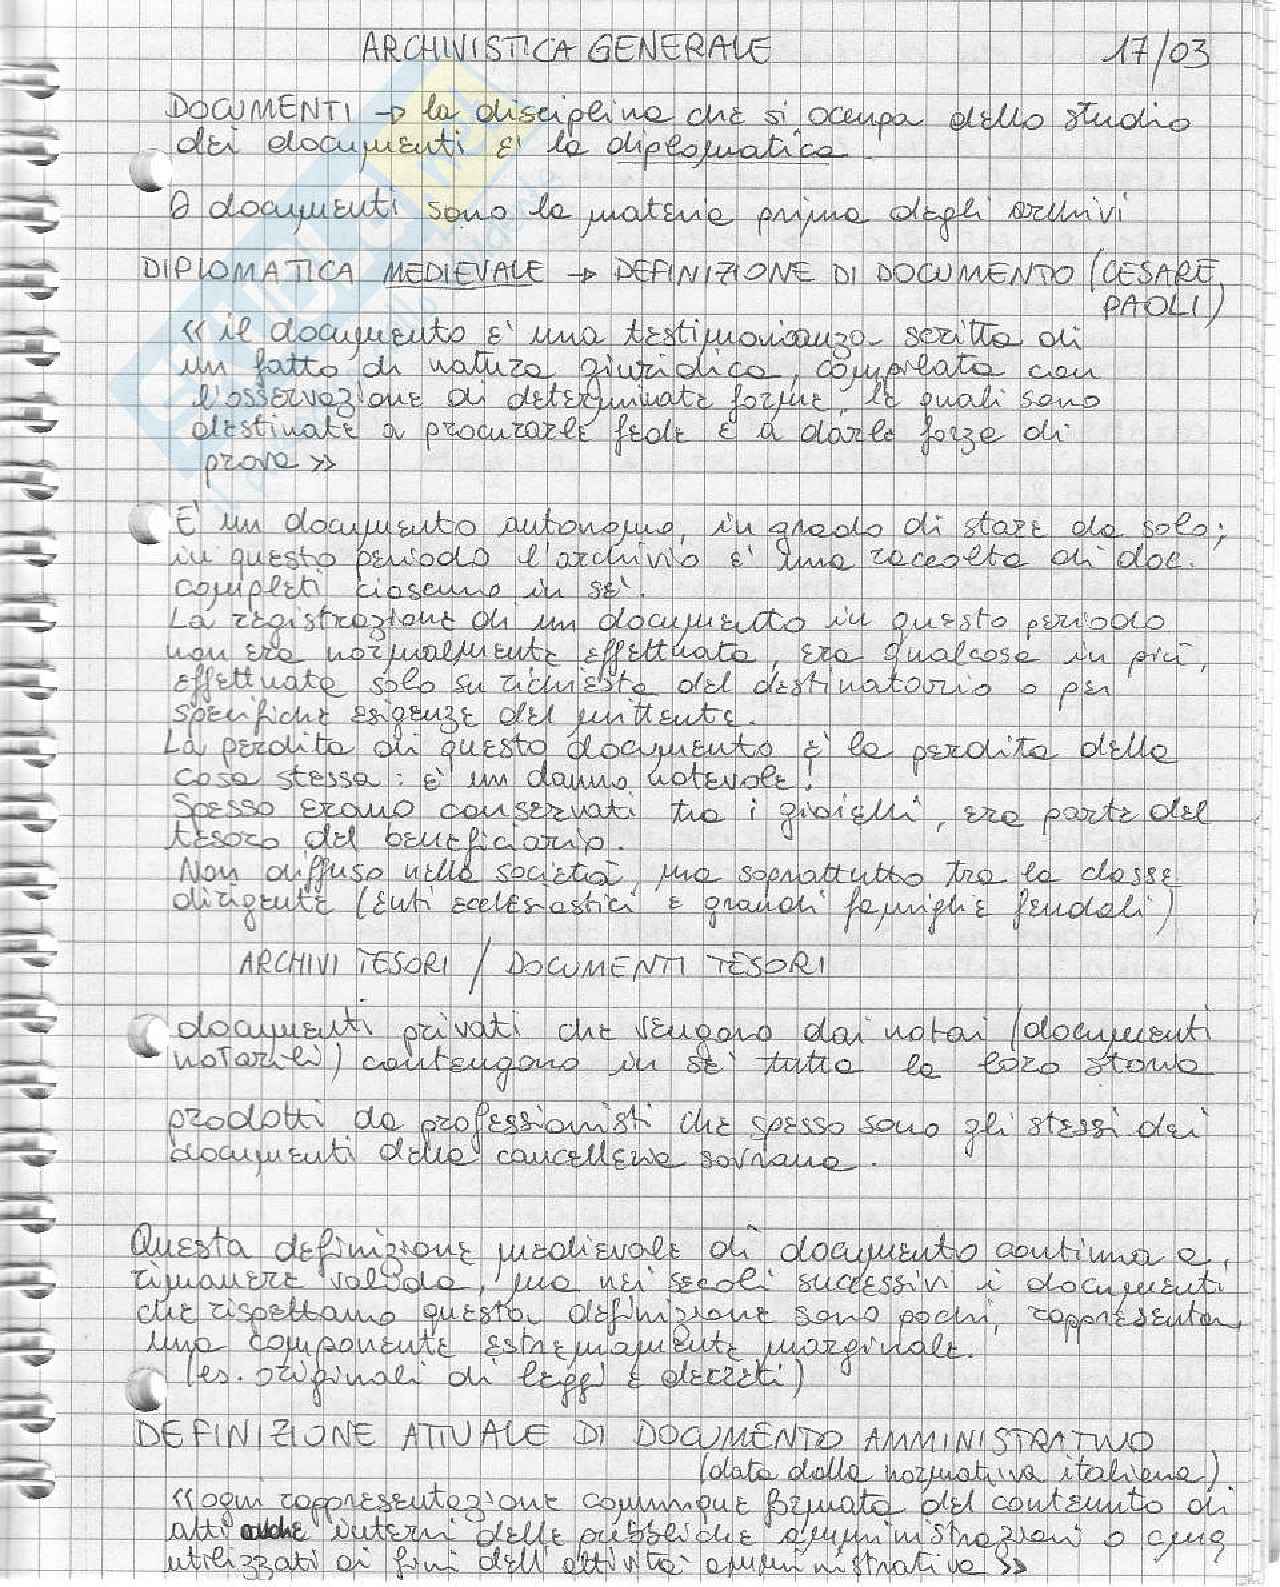 ARCHIVISTICA GENERALE 17/03
DOCUMENTI → la disciplina che si occupa dello studio
dei documenti è la diplomatica.
I documenti sono la materia prima degli archivi
DIPLOMATICA MEDIEVALE → DEFINIZIONE DI DOCUMENTO (CESARE
PAOLI)
« il documento è una testimonianza scritta di
un fatto di natura giuridica, compilata con
l'osservazione di determinate forme, le quali sono
destinate a procurarle fede e a darle forza di
prova »
E' un documento autonomo, in grado di stare da solo;
in questo periodo l'archivio è una raccolta di doc.
completi ciascuno in sé.
La registrazione di un documento in questo periodo
non era normalmente effettuata, era qualcosa in più,
effettuata solo su richiesta del destinatario o per
specifiche esigenze del mittente.
La perdita di questo documento è la perdita della
cosa stessa: è un danno notevole!
Spesso erano conservati tra i gioielli, era parte del
tesoro del beneficiario.
Non diffuso nella società, ma soprattutto tra la classe
dirigente (enti ecclesiastici e grandi famiglie feudali)
ARCHIVI TESORI / DOCUMENTI TESORI
documenti privati che vengono dai notai (documenti
notarili) contengono in sé tutta la loro storia
prodotti da professionisti che spesso sono gli stessi dei
documenti della cancelleria sovrana.
Questa definizione medievale di documento continua a
rimanere valida, ma nei secoli successivi i documenti
che rispettano questa definizione sono pochi, rappresentan
una componente estremamente marginale.
(es. originali di leggi e decreti)
DEFINIZIONE ATTUALE DI DOCUMENTO AMMINISTRATIVO
(data dalla normativa italiana)
«ogni rappresentazione comunque formata del contenuto di
atti anche interni delle pubbliche amministrazioni o cmq
utilizzati ai fini dell'attività amministrativa »